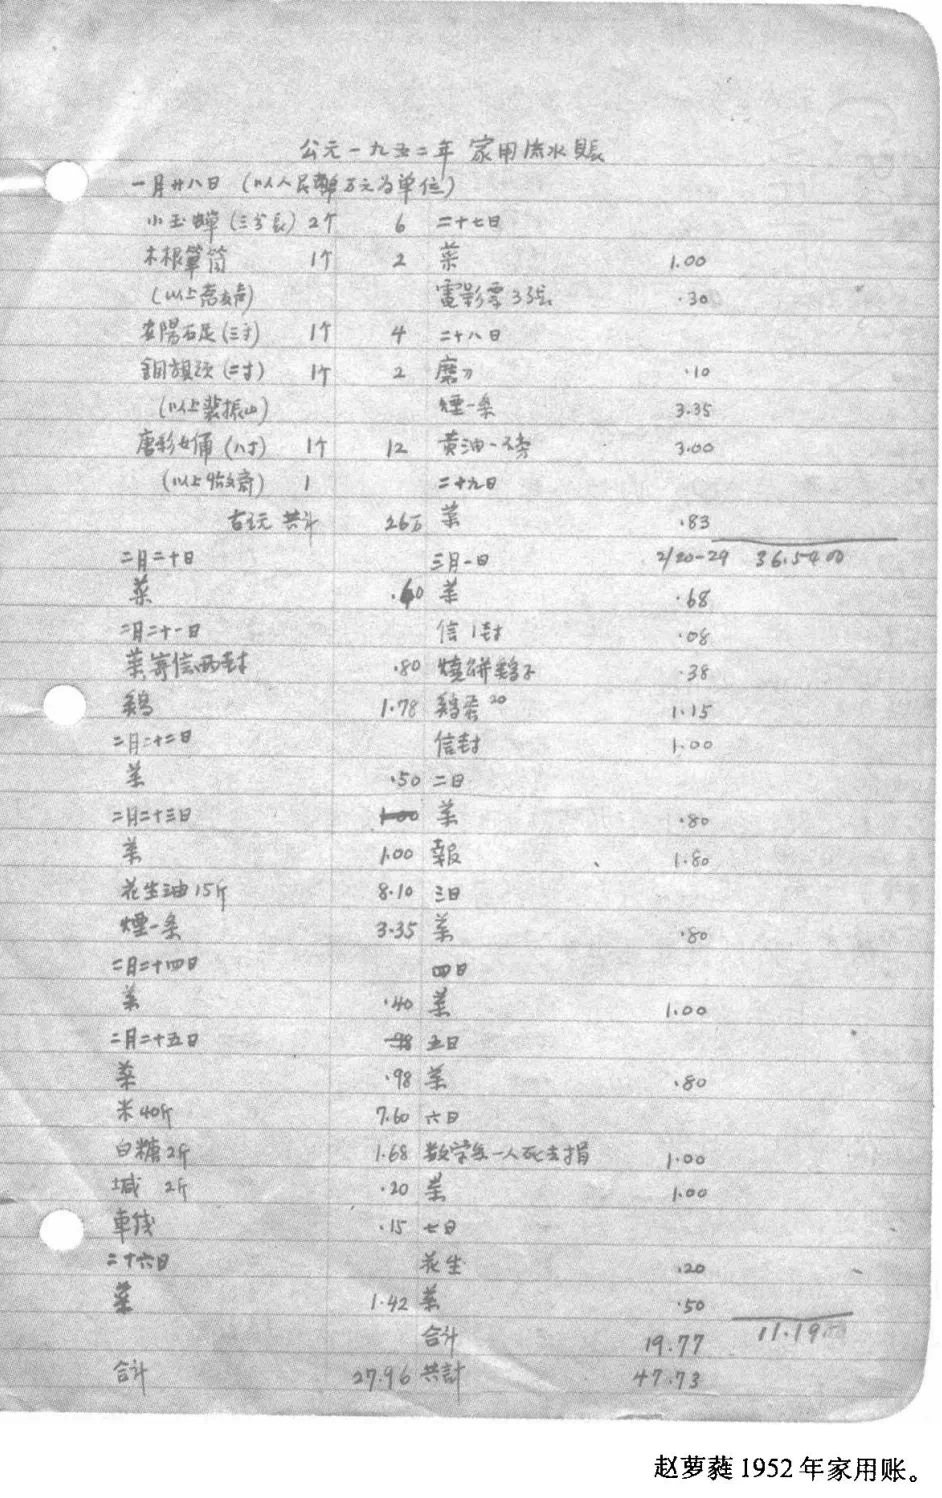 公元一九五二年 家用流水賬
一月廿八日 (以人民幣万元为单位)
小玉蟬(三公長) 2个 6
木根筆筒 1个 2
(以上
安陽石足(三寸) 1个 4
銅 (二寸) 1个 2
(以上裴振山)
唐彩女俑(八寸) 1个 12
(以上 斋) 1
古玩 共計 26万
二月二十日
菜 .60
二月二十一日
菜寄信两封 .80
鷄 1.78
二月二十二日
菜 .50
二月二十三日 1.00
菜 1.00
花生油15斤 8.10
煙一条 3.35
二月二十四日
菜 .40
二月二十五日 .98
菜 .98
米40斤 7.60
白糖2斤 1.68
堿 2斤 .20
車钱 .15
二十六日
菜 1.42
合计 27.96
二十七日
菜 1.00
電影票3张 .30
二十八日
磨刀 .10
煙一条 3.35
黄油一磅 3.00
二十九日
菜 .83
三月一日 2/20-29 36.5400
菜 .68
信1封 .08
燒餅鷄子 .38
鷄蛋20 1.15
信封 1.00
二日
菜 .80
報 1.80
三日
菜 .80
四日
菜 1.00
五日
菜 .80
六日
数学系一人死去捐 1.00
菜 1.00
七日
花生 .20
菜 .50
合计 19.77 11.1900
共計 47.73
赵萝蕤1952年家用账。